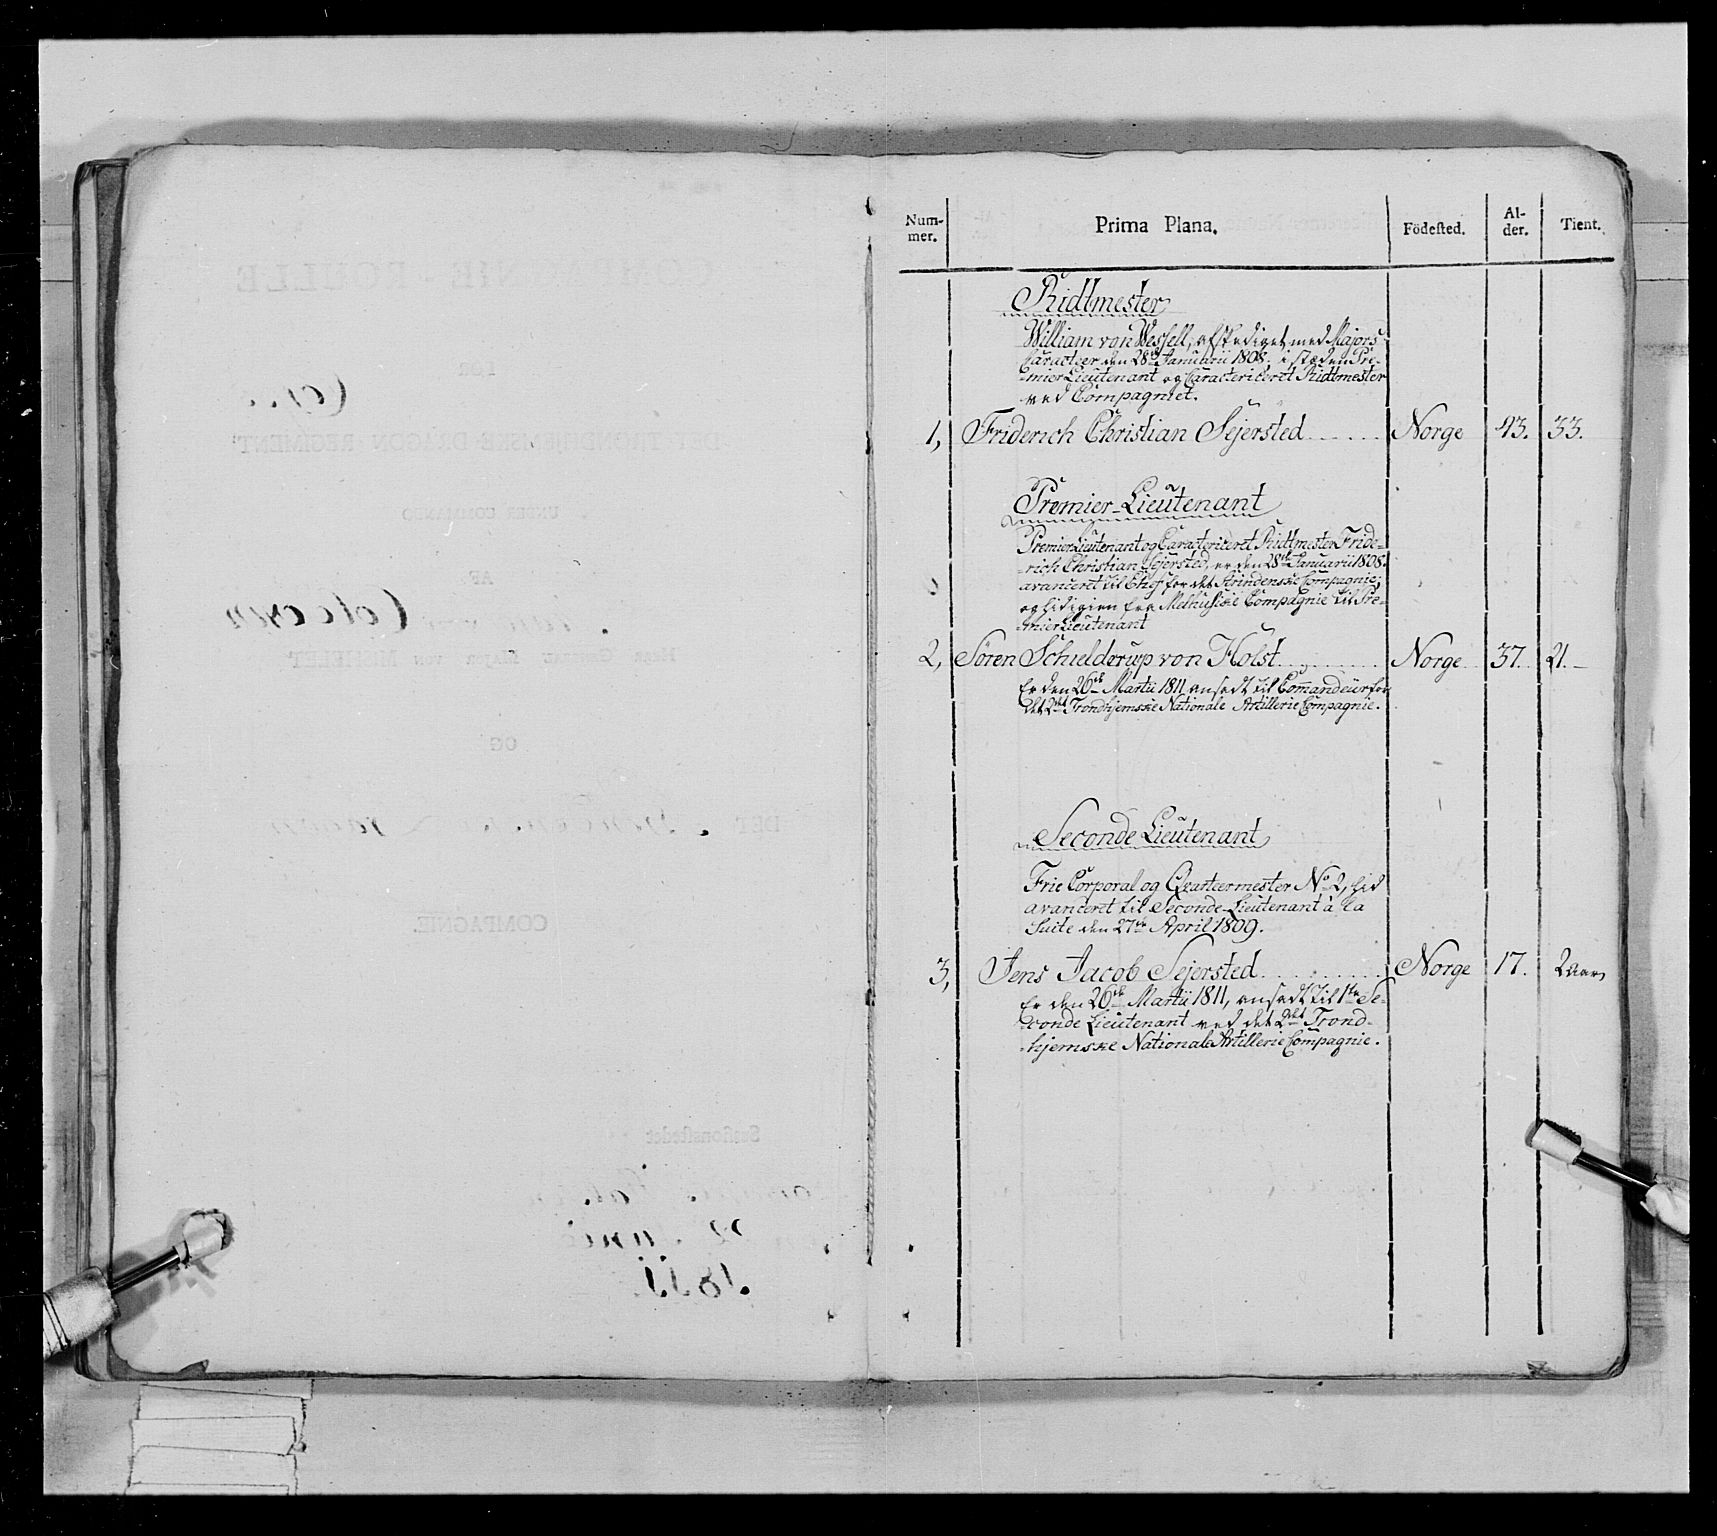 Num-
mer.
Prima Plana.
Födested.
Al-
der.
Tient.
Ridtmester
William von Wessell, afskediget med Majors
Caracteer den 28de Januarii 1808. i stæden Pre-
-mier Lieutenant og Caracteriseret Ridtmester
ved Compagniet.
1, Friderich Christian Sejersted Norge 43. 33.
Premier-Lieutenant
Premier Lieutenant og Caracteriseret Ridtmester Fride-
-rich Christian Sejersted, er den 28de Januarii 1808.
avanceret til Chef for det Strindenske Compagnie;
og hidigien fra Melhusiske Compagnie til Pre-
-mier Lieutenant
2, Sören Schielderup von Holst Norge 37. 21.
Er den 26de Martii 1811 ansadt til Commandeur for
det 2det Trondhjemske Nationale Artillerie Compagnie.
Seconde Lieutenant
Frie Corporal og Qvarteermester No 2, hid
avanceret til Seconde-Lieutenant à la
Suite den 27de April 1809.
3, Jens Jacob Sejersted Norge 17. 2 Aar,
Er den 26de Martii 1811, ansadt til 1ste Se-
-conde Lieutenant ved det 2det Trond-
-hjemske Nationale Artillerie Compagnie.